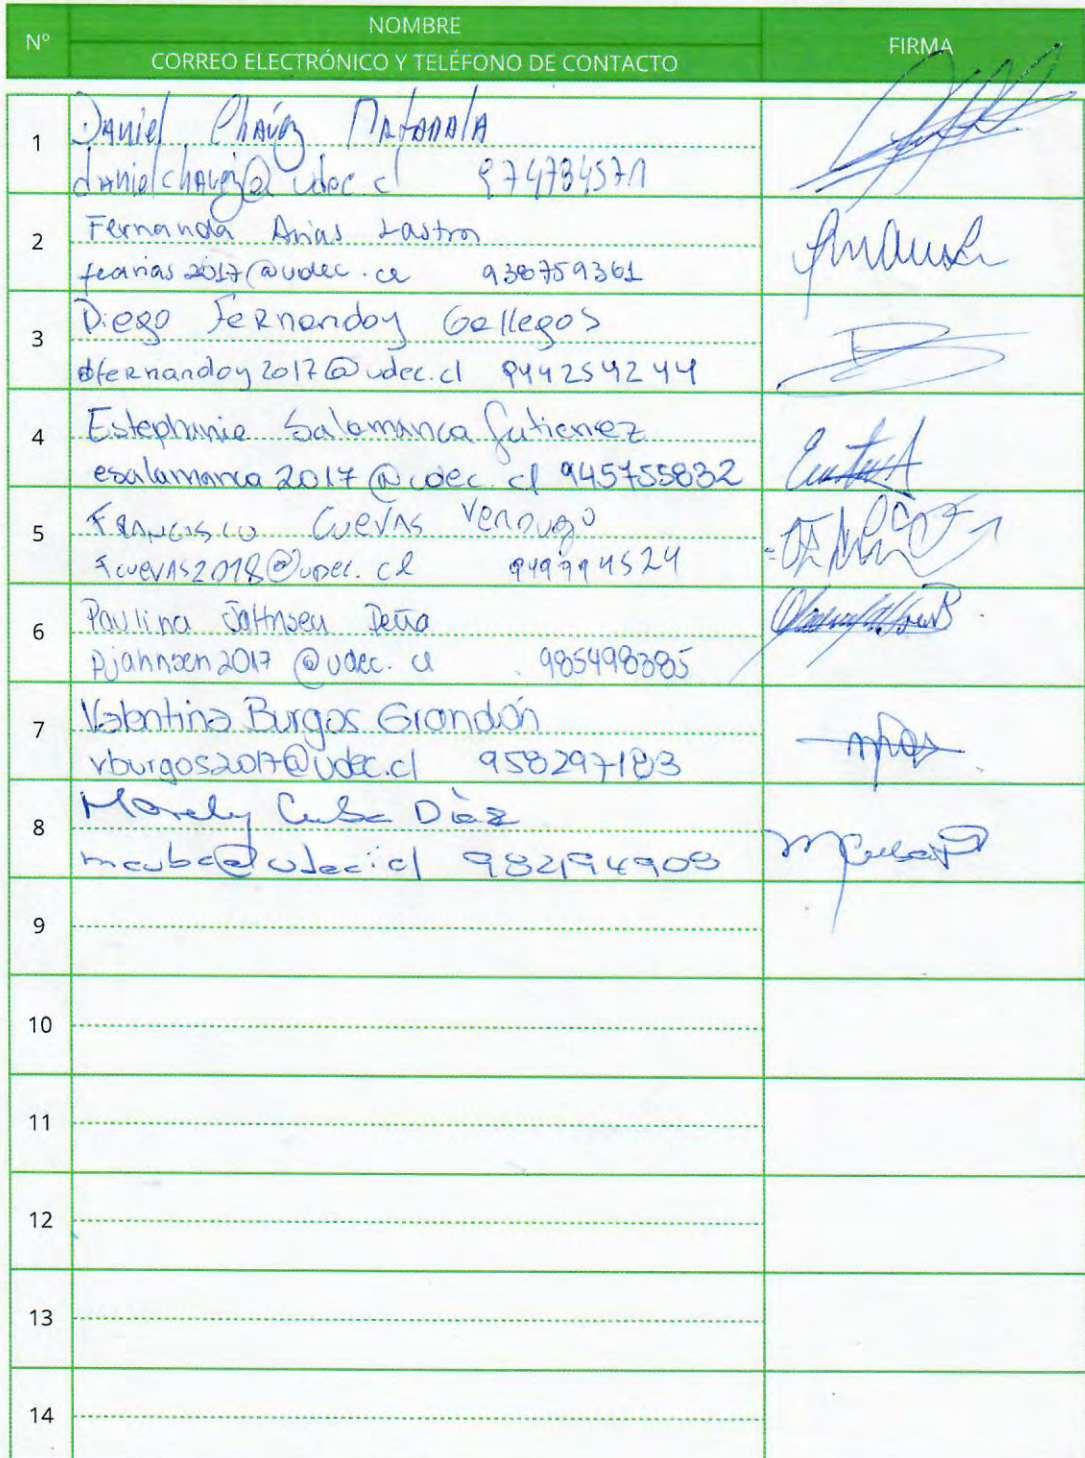 Nº
NOMBRE
CORREO ELECTRÓNICO Y TELÉFONO DE CONTACTO
FIRMA
1
Daniel Chávez Matamala
danielchavez@udec.cl 974784571
2
Fernanda Arias Lastra
fearias2017@udec.cl 938759361
3
Diego Fernandoy Gallegos
dfernandoy2017@udec.cl 944254244
4
Estephanie Salamanca Gutierrez
esalamanca2017@udec.cl 945755832
5
Francisco Cuevas Verdugo
fcuevas2018@udec.cl 949994524
6
Paulina Jahnsen Peña
pjahnsen2017@udec.cl 985498385
7
Valentina Burgos Grandón
vburgos2017@udec.cl 958297183
8
Marely Cuba Díaz
mcuba@udec.cl 982194908
9
10
11
12
13
14